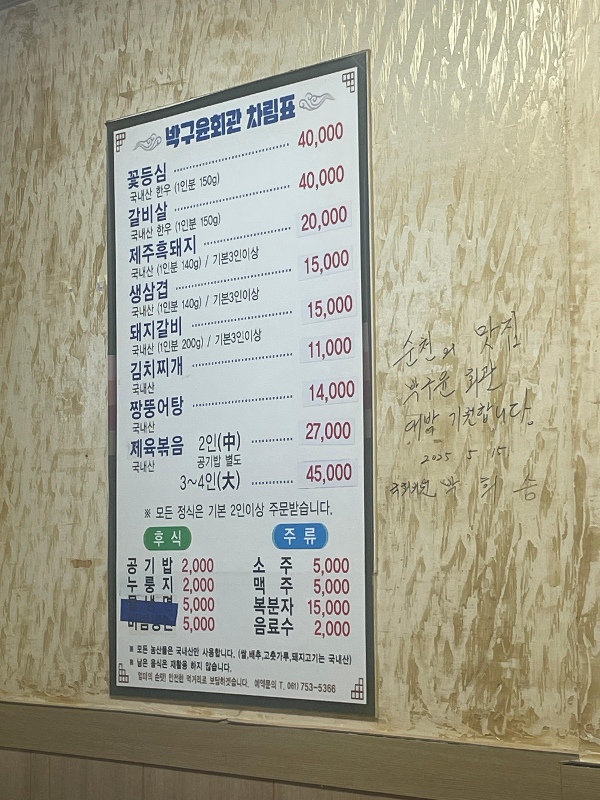 박구윤회관 차림표
꽃등심 40,000
국내산 한우 (1인분 150g)
갈비살 40,000
국내산 한우 (1인분 150g)
제주흑돼지 20,000
국내산 (1인분 140g) / 기본3인이상
생삼겹 15,000
국내산 (1인분 140g) / 기본3인이상
돼지갈비 15,000
국내산 (1인분 200g) / 기본3인이상
김치찌개 11,000
국내산
짱뚱어탕 14,000
국내산
제육볶음 2인(中) 27,000
국내산 공기밥 별도
3~4인(大) 45,000
※ 모든 정식은 기본 2인이상 주문받습니다.
후식
공기밥 2,000
누룽지 2,000
5,000
5,000
주류
소주 5,000
맥주 5,000
복분자 15,000
음료수 2,000
※ 모든 농산물은 국내산만 사용합니다. (쌀,배추,고춧가루,돼지고기는 국내산)
※ 남은 음식은 재활용 하지 않습니다.
엄마의 손맛! 안전한 먹거리로 보답하겠습니다. 예약문의 T. 061) 753-5366
순천의 맛집
박구윤 회관
대박 기원합니다.
2025 5 15
국회의원 박 희 승